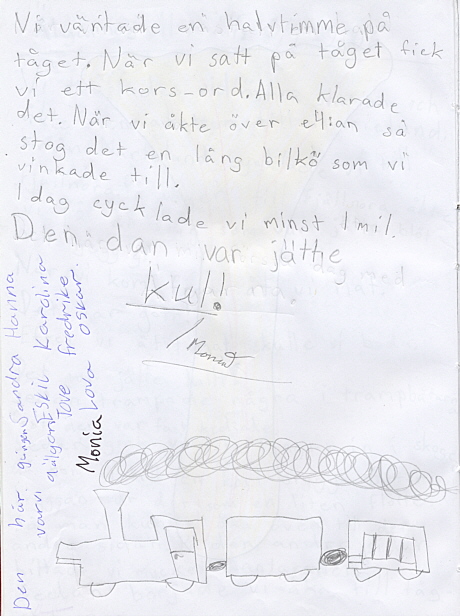 Vi väntade en halvtimme på
tåget. När vi satt på tåget fick
vi ett kors-ord. Alla klarade
det. När vi åkte över e4:an så
stog det en lång bilkö som vi
vinkade till.
Idag cycklade vi minst 1 mil.
Den dan var jätte
kul!
/Monia
Den här gången Sandra Hanna
varvi Eskil Karolina
Tove fredrike
Monia Lova Oskar.